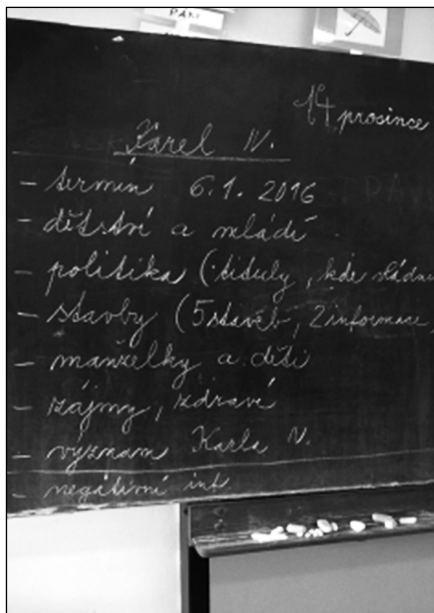 14 prosince
Karel IV.
- termín 6. 1. 2016
- dětství a mládí
- politika (tituly, kde
- stavby (5staveb, 2informace,
- manželky a děti
- zájmy, zdraví
- význam Karla IV.
- negativní inf